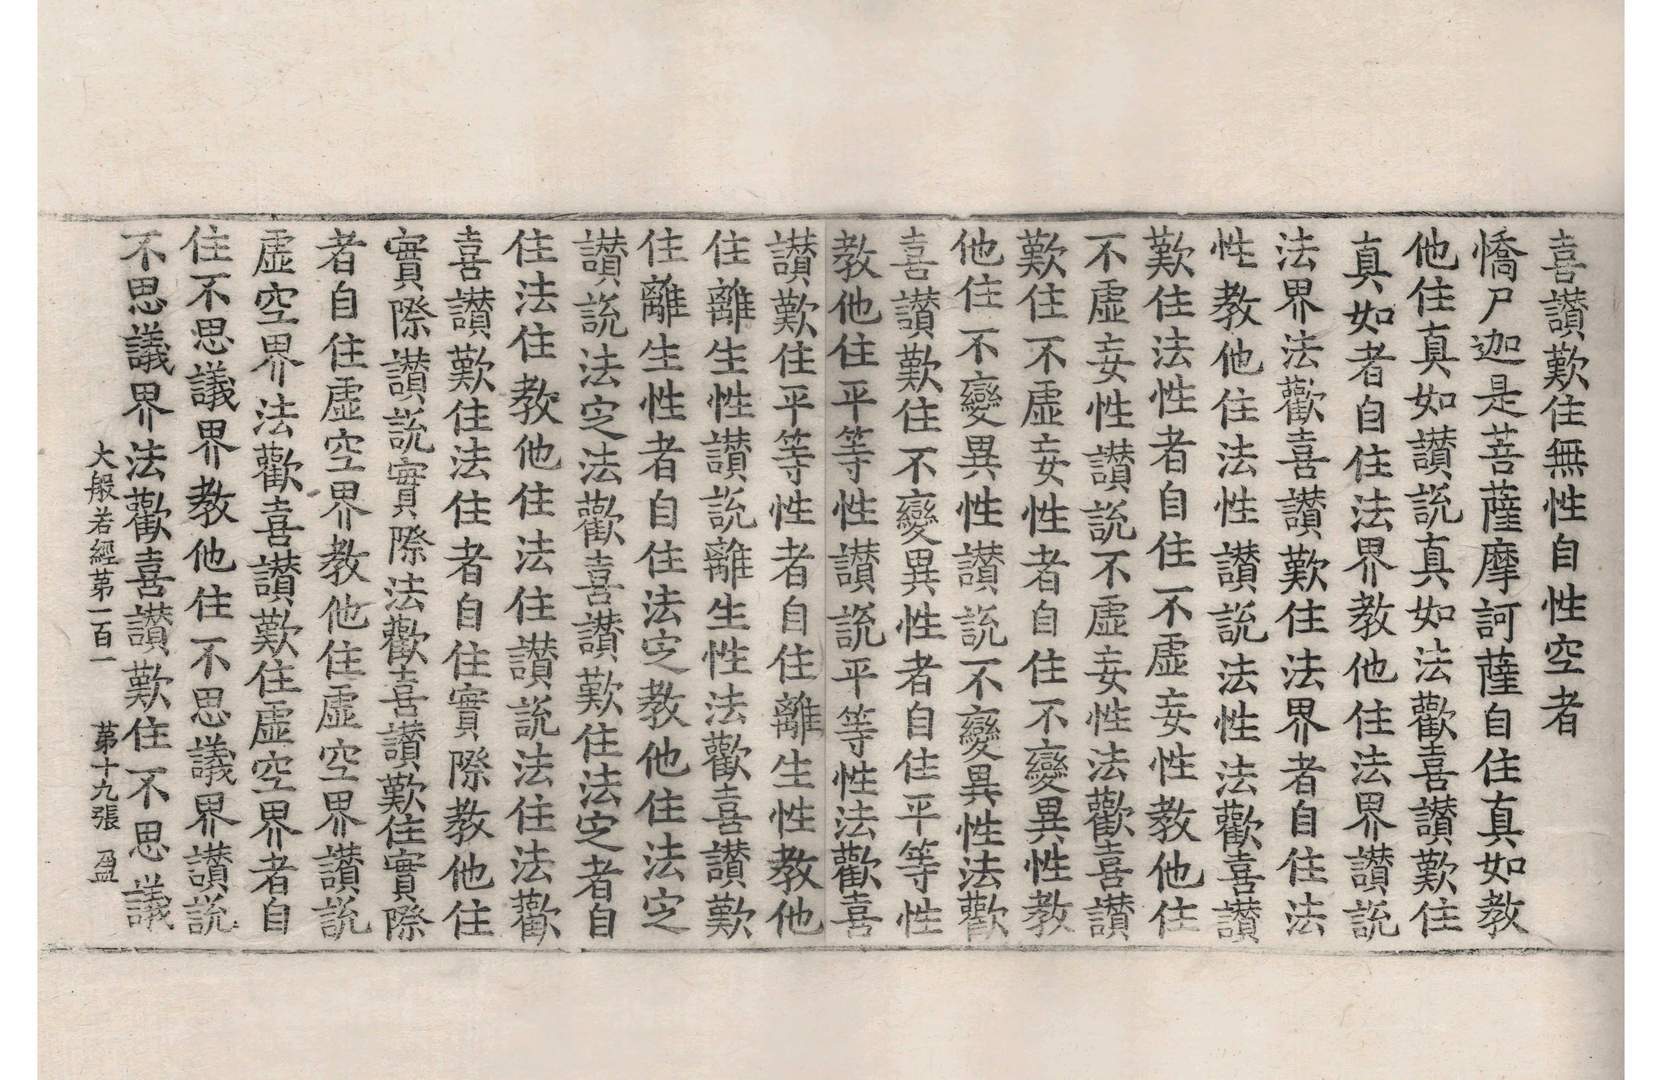 喜讃歎住無性自性空者
憍尸迦是菩薩摩訶薩自住真如教
他住真如讃説真如法歡喜讃歎住
真如者自住法界教他住法界讃説
法界法歡喜讃歎住法界者自住法
性教他住法性讃説法性法歡喜讃
歎住法性者自住不虛妄性教他住
不虛妄性讃説不虛妄性法歡喜讃
歎住不虛妄性者自住不變異性教
他住不變異性讃説不變異性法歡
喜讃歎住不變異性者自住平等性
教他住平等性讃説平等性法歡喜
讃歎住平等性者自住離生性教他
住離生性讃説離生性法歡喜讃歎
住離生性者自住法㝎教他住法㝎
讃説法㝎法歡喜讃歎住法㝎者自
住法住教他住法住讃説法住法歡
喜讃歎住法住者自住實際教他住
實際讃説實際法歡喜讃歎住實際
者自住虛空界教他住虛空界讃説
虛空界法歡喜讃歎住虛空界者自
住不思議界教他住不思議界讃説
不思議界法歡喜讃歎住不思議
大般若經苐一百一 苐十九張 盈